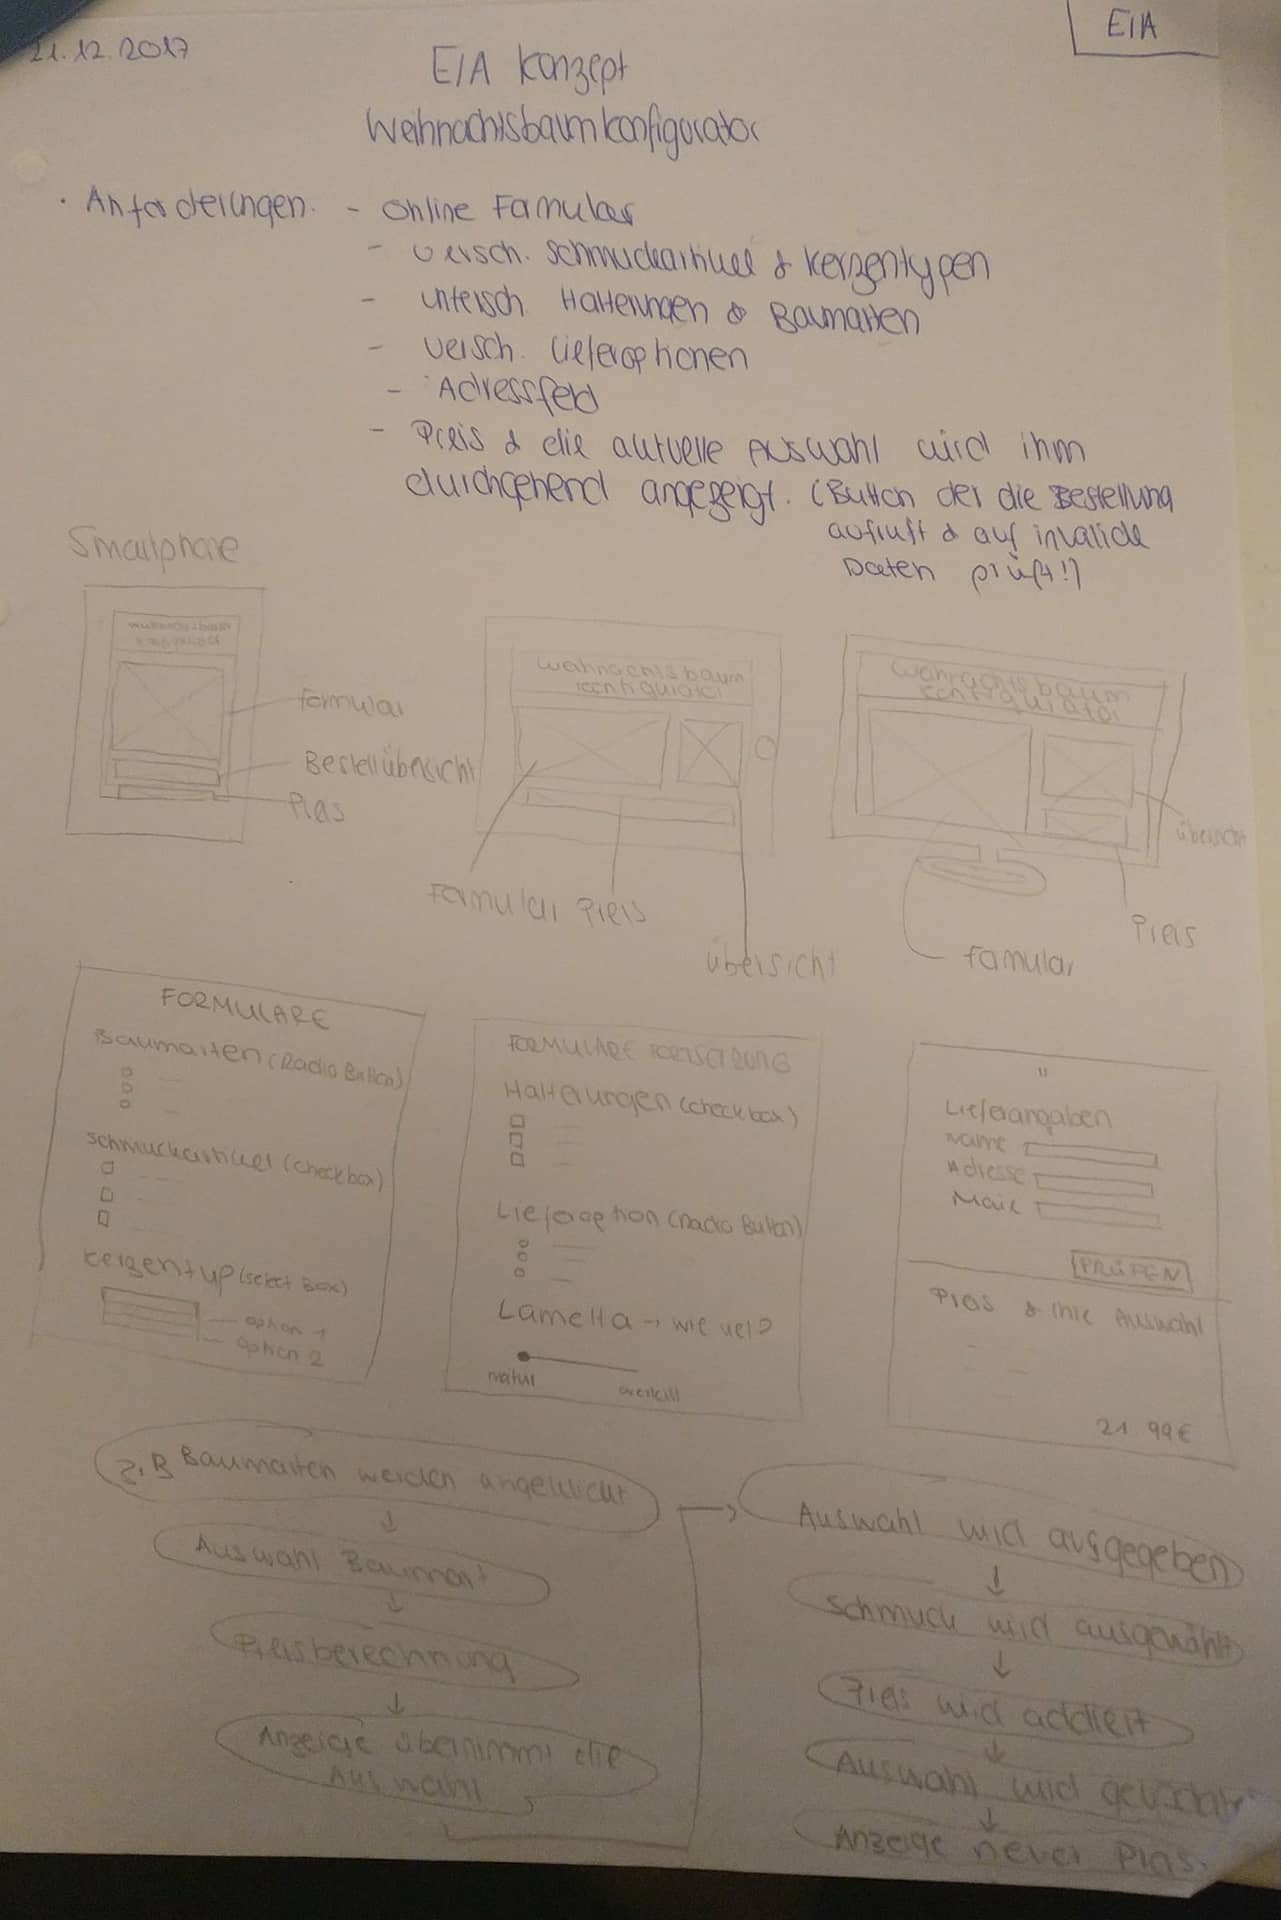 21.12.2017
EIA
EIA Konzept
Weihnachtsbaumkonfigurator
· Anforderungen. - Online Formular
- versch. Schmuckartikel & Kerzentypen
- untersch. Halterungen & Baumarten
- versch. Lieferoptionen
- Adressfeld
- Preis & die aktuelle Auswahl wird ihm
durchgehend angezeigt. (Button der die Bestellung
aufruft & auf invalide
Daten prüft!)
Smartphone
Weihnachtsbaum
konfigurator
Formular
Bestellübersicht
Preis
Weihnachtsbaum
konfigurator
Formular Preis
Übersicht
Weihnachtsbaum
konfigurator
Übersicht
Preis
Formular
FORMULARE
Baumarten (Radio Button)
Schmuckartikel (Checkbox)
Kerzentyp (Select Box)
option 1
option 2
FORMULARE FORTSETZUNG
Halterungen (Checkbox)
Lieferoption (Radio Button)
Lametta → wie viel?
natur
overkill
"
Lieferangaben
Name
Adresse
Mail
PRÜFEN
Preis & Ihre Auswahl
21.99€
z.B Baumarten werden angeklickt
↓
Auswahl Baumart
↓
Preisberechnung
↓
Anzeige übernimmt die
Auswahl
→ Auswahl wird ausgegeben
↓
Schmuck wird ausgewählt
↓
Preis wird addiert
↓
Auswahl wird
↓
Anzeige neuer Preis.